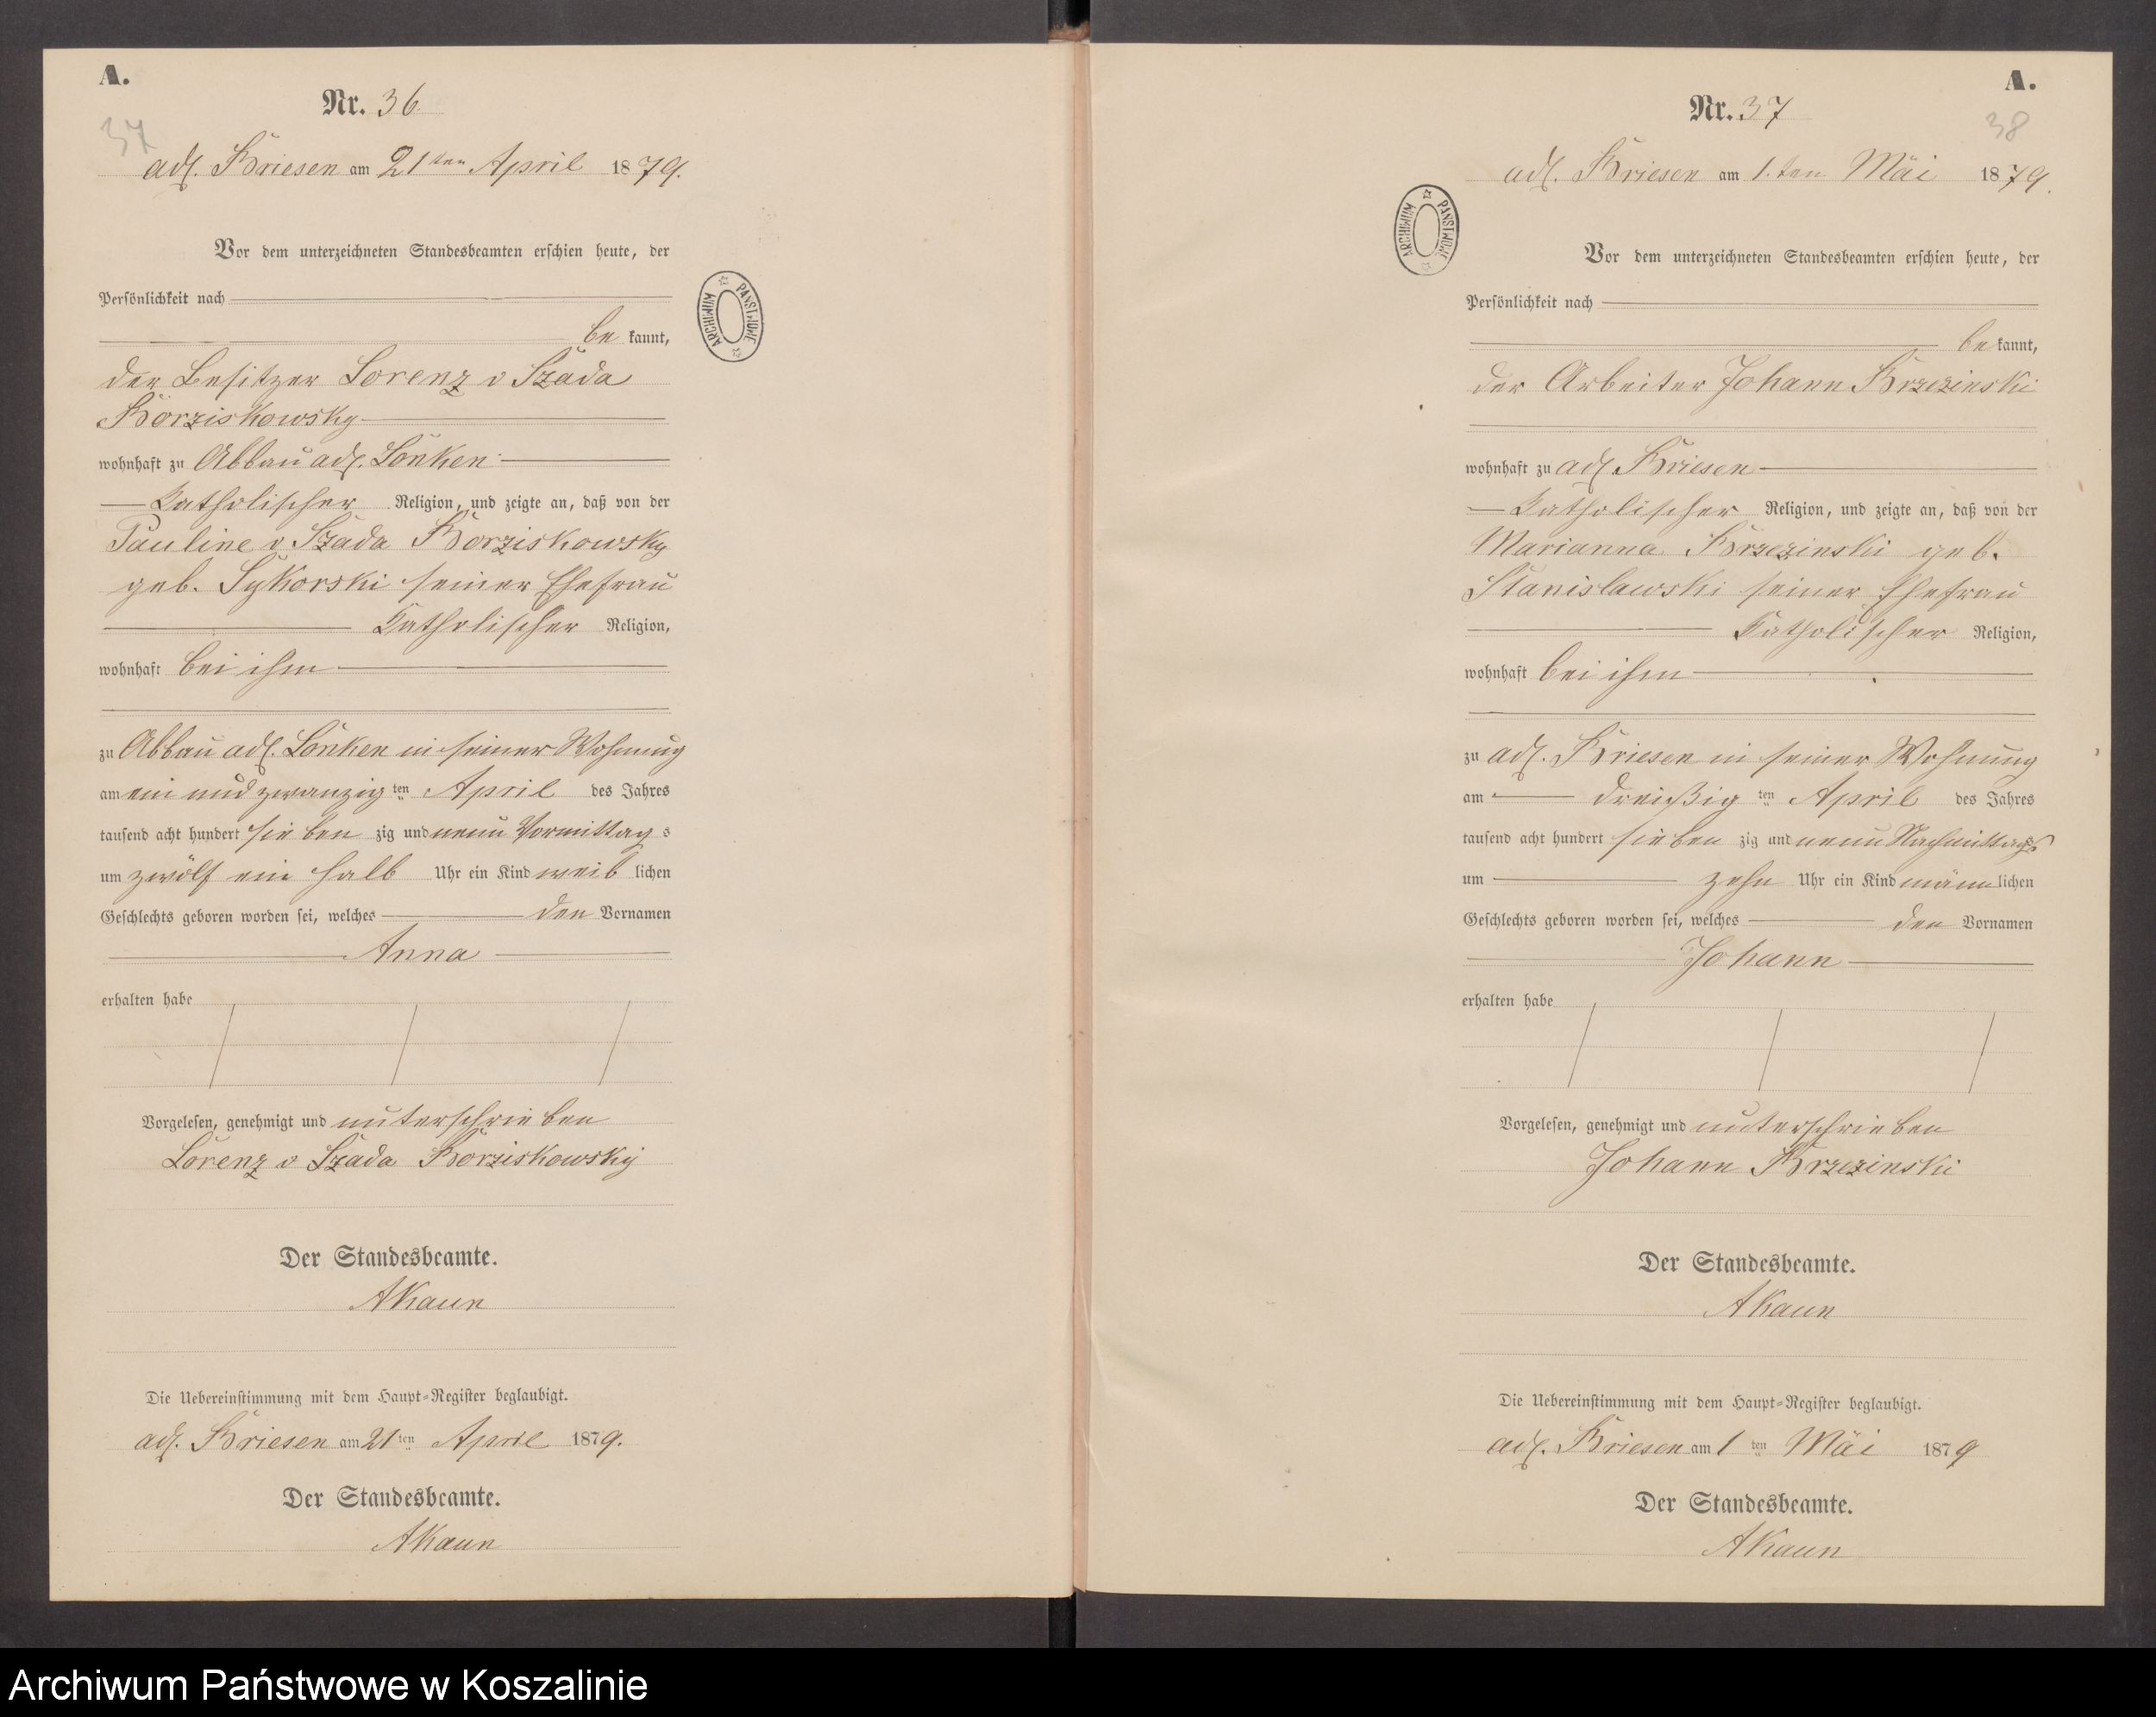 A.
Nr. 36
37
adl. Briesen am 21ten April 1879.
Vor dem unterzeichneten Standesbeamten erschien heute, der
Persönlichkeit nach
be kannt,
der Besitzer Lorenz v Szada
Borziskowsky
wohnhaft zu Abbau adl. Lonken
Katholischer Religion, und zeigte an, daß von der
Pauline v. Szada Borziskowsky
geb. Sykorski seiner Ehefrau
Katholischer Religion,
wohnhaft bei ihm
zu Abbau adl. Lonken in seiner Wohnung
am ein und zwanzig ten April des Jahres
tausend acht hundert sieben zig und neun Vormittag s
um zwölf ein halb Uhr ein Kind weib lichen
Geschlechts geboren worden sei, welches den Vornamen
Anna
erhalten habe
Vorgelesen, genehmigt und unterschrieben
Lorenz v Szada Borziskowsky
Der Standesbeamte.
AKaun
Die Uebereinstimmung mit dem Haupt-Register beglaubigt.
adl. Briesen am 21 ten April 1879.
Der Standesbeamte.
AKaun
ARCHIWUM PAŃSTWOWE
A.
Nr. 37
38
adl. Briesen am 1.ten Mai 1879.
ARCHIWUM PAŃSTWOWE
Vor dem unterzeichneten Standesbeamten erschien heute, der
Persönlichkeit nach
be kannt,
der Arbeiter Johann Brzezinski
wohnhaft zu adl. Briesen
Katholischer Religion, und zeigte an, daß von der
Marianna Brzezinski geb.
Stanislawski seiner Ehefrau
Katholischer Religion,
wohnhaft bei ihm
zu adl. Briesen in seiner Wohnung
am dreißig ten April des Jahres
tausend acht hundert sieben zig und neun Nachmittags
um zehn Uhr ein Kind männ lichen
Geschlechts geboren worden sei, welches den Vornamen
Johann
erhalten habe
Vorgelesen, genehmigt und unterschrieben
Johann Brzezinski
Der Standesbeamte.
AKaun
Die Uebereinstimmung mit dem Haupt-Register beglaubigt.
adl. Briesen am 1 ten Mai 1879
Der Standesbeamte.
AKaun
Archiwum Państwowe w Koszalinie